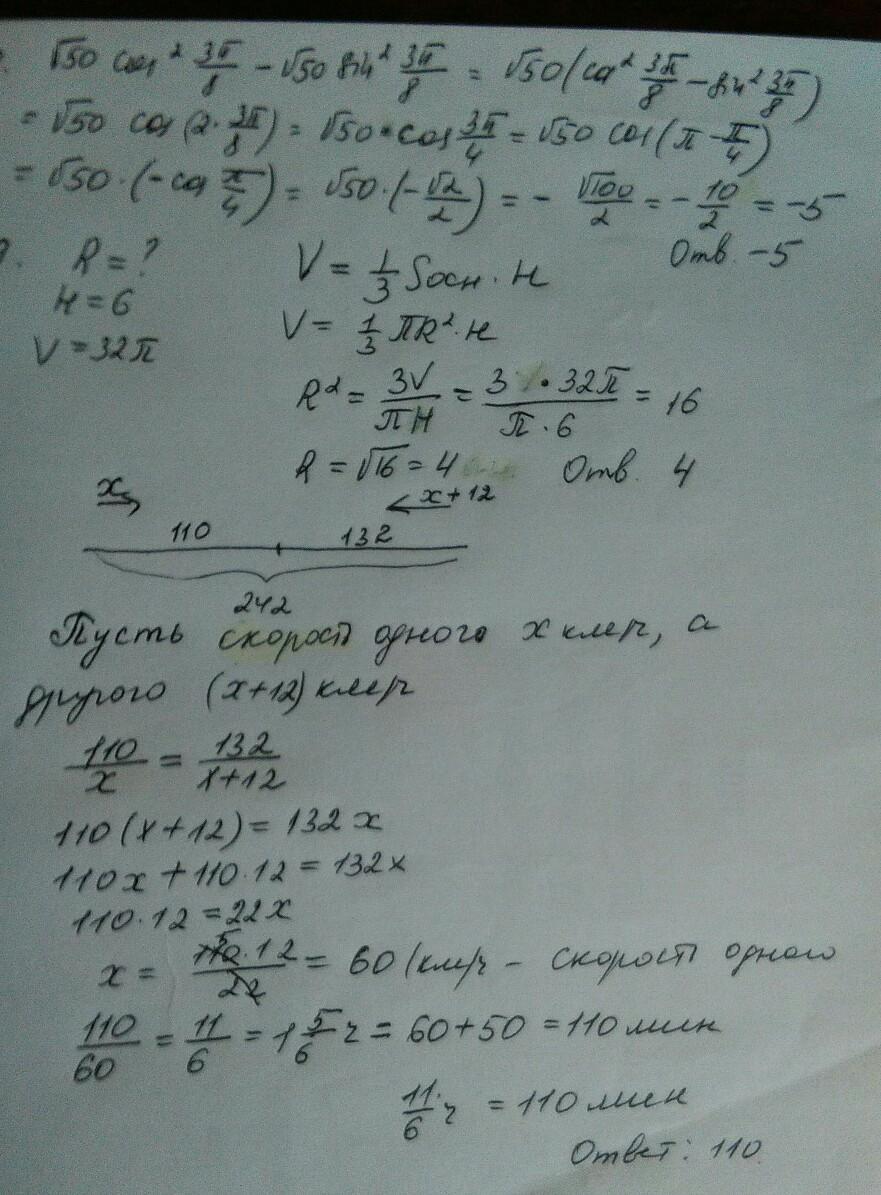 √50 cos² 3π/8 − √50 sin² 3π/8 = √50 (cos² 3π/8 − sin² 3π/8)
= √50 cos (2 · 3π/8) = √50 · cos 3π/4 = √50 cos (π − π/4)
= √50 · (−cos π/4) = √50 · (−√2/2) = − √100/2 = − 10/2 = −5
Отв. −5
R = ?
H = 6
V = 32π
V = 1/3 Sосн · H
V = 1/3 πR² · H
R² = 3V/πH = 3 · 32π/π · 6 = 16
R = √16 = 4 Отв. 4
x x+12
110 132
242
Пусть скорость одного x км/ч, а
другого (x+12) км/ч
110/x = 132/x+12
110 (x+12) = 132 x
110x + 110·12 = 132x
110·12 = 22x
x = 110·12/22 = 60 (км/ч – скорость одного
110/60 = 11/6 = 1 5/6 ч = 60+50 = 110 мин
11/6 ч = 110 мин
Ответ: 110